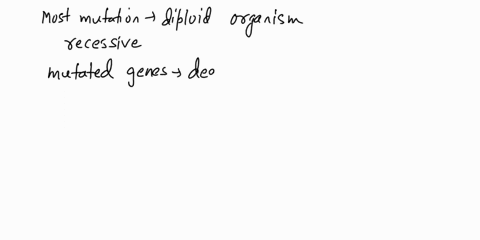 Most mutation → diploid organism
recessive
mutated genes → deo